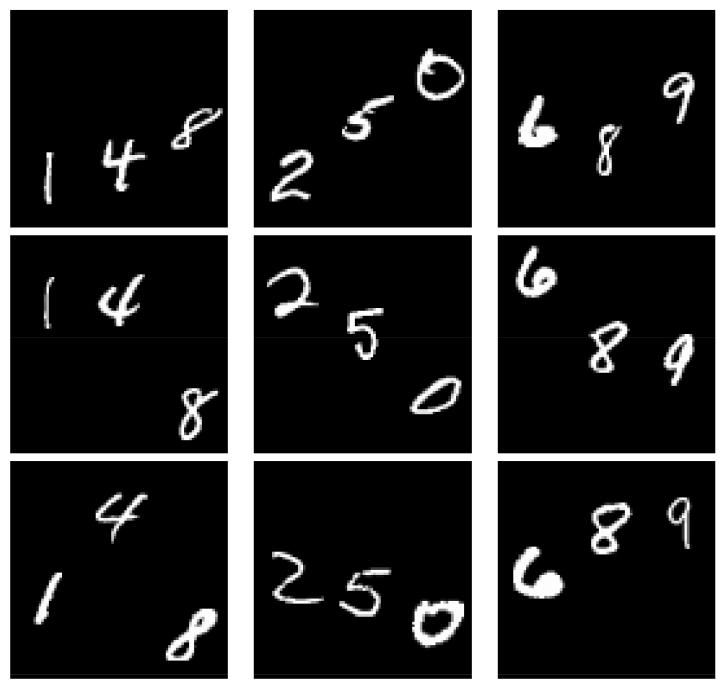 148 250 689
148 250 689
148 250 689